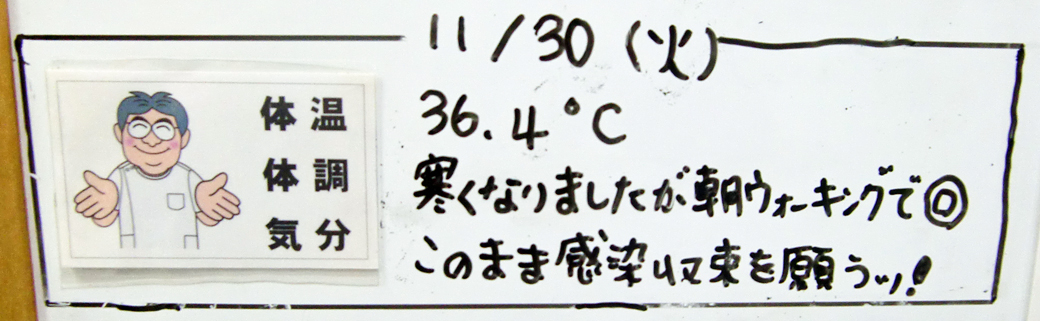 11/30(火)
体温
36.4°C
体調
寒くなりましたが朝ウォーキングで◎
気分
このまま感染収束を願うッ!